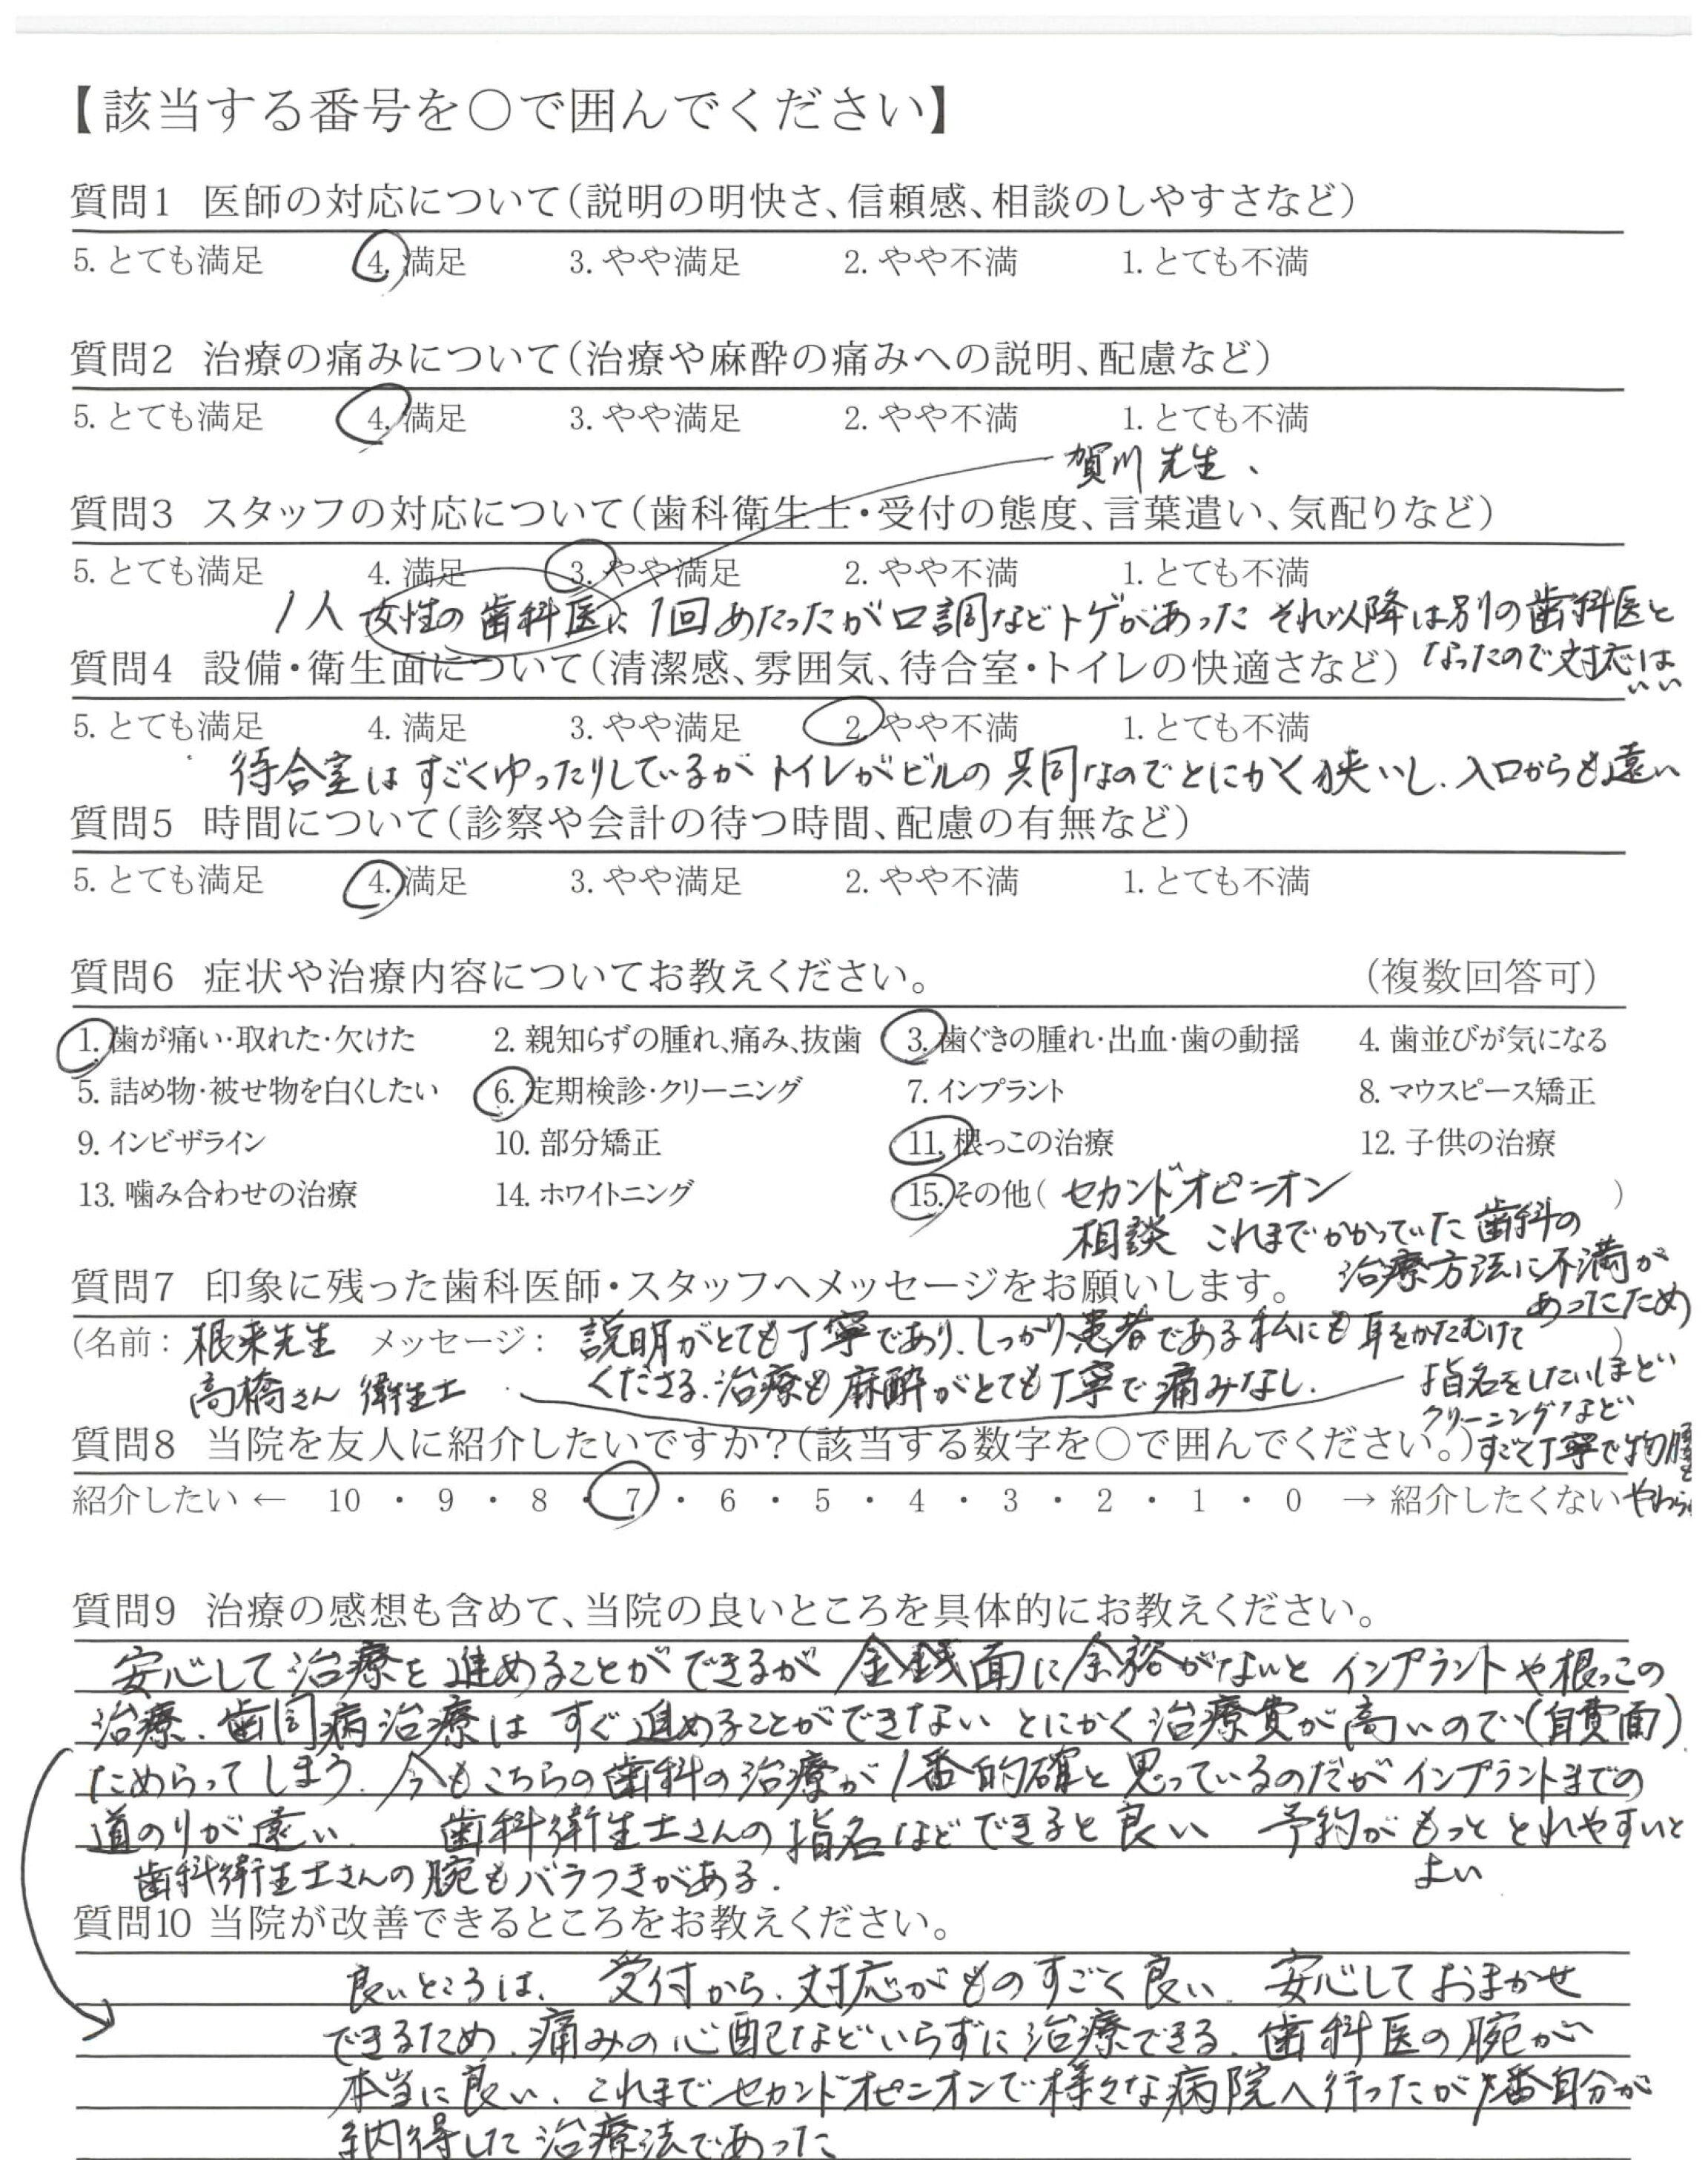 【該当する番号を〇で囲んでください】
質問1 医師の対応について(説明の明快さ、信頼感、相談のしやすさなど)
5. とても満足 4. 満足 3. やや満足 2. やや不満 1. とても不満
質問2 治療の痛みについて(治療や麻酔の痛みへの説明、配慮など)
5. とても満足 4. 満足 3. やや満足 2. やや不満 1. とても不満
賀川先生、
質問3 スタッフの対応について(歯科衛生士・受付の態度、言葉遣い、気配りなど)
5. とても満足 4. 満足 3. やや満足 2. やや不満 1. とても不満
1人 女性の歯科医に1回めたったが口調などトゲがあった それ以降は別の歯科医と
なったので対応は
いい
質問4 設備・衛生面について(清潔感、雰囲気、待合室・トイレの快適さなど)
5. とても満足 4. 満足 3. やや満足 2. やや不満 1. とても不満
待合室はすごくゆったりしているが トイレがビルの共同なのでとにかく狭いし、入口からも遠い
質問5 時間について(診察や会計の待つ時間、配慮の有無など)
5. とても満足 4. 満足 3. やや満足 2. やや不満 1. とても不満
質問6 症状や治療内容についてお教えください。 (複数回答可)
1. 歯が痛い・取れた・欠けた 2. 親知らずの腫れ、痛み、抜歯 3. 歯ぐきの腫れ・出血・歯の動揺 4. 歯並びが気になる
5. 詰め物・被せ物を白くしたい 6. 定期検診・クリーニング 7. インプラント 8. マウスピース矯正
9. インビザライン 10. 部分矯正 11. 根っこの治療 12. 子供の治療
13. 噛み合わせの治療 14. ホワイトニング 15. その他( セカンドオピニオン )
相談 これまでかかっていた歯科の
治療方法に不満が
あったため
質問7 印象に残った歯科医師・スタッフへメッセージをお願いします。
(名前: 根来先生 メッセージ: 説明がとても丁寧であり、しっかり患者である私にも耳をかたむけて )
高橋さん 衛生士 くださる。治療も麻酔がとても丁寧で痛みなし。
指名をしたいほど
クリーニングなど
すごく丁寧で物腰も
やわら
質問8 当院を友人に紹介したいですか?(該当する数字を〇で囲んでください。)
紹介したい ← 10 ・ 9 ・ 8 ・ 7 ・ 6 ・ 5 ・ 4 ・ 3 ・ 2 ・ 1 ・ 0 → 紹介したくない
質問9 治療の感想も含めて、当院の良いところを具体的にお教えください。
安心して治療を進めることができるが 金銭面に余裕がないと インプラントや根っこの
治療、歯周病治療は すぐ進めることができない とにかく治療費が高いので(自費面)
ためらってしまう。今もこちらの歯科の治療が1番的確と思っているのだが インプラントまでの
道のりが遠い。 歯科衛生士さんの指名などできると良い 予約がもっととれやすいと
よい
歯科衛生士さんの腕もバラつきがある。
質問10 当院が改善できるところをお教えください。
良いところは、 受付から、対応がものすごく良い。 安心しておまかせ
できるため、痛みの心配などいらずに治療できる。歯科医の腕が
本当に良い。これまでセカンドオピニオンで様々な病院へ行ったが1番自分が
納得した治療法であった